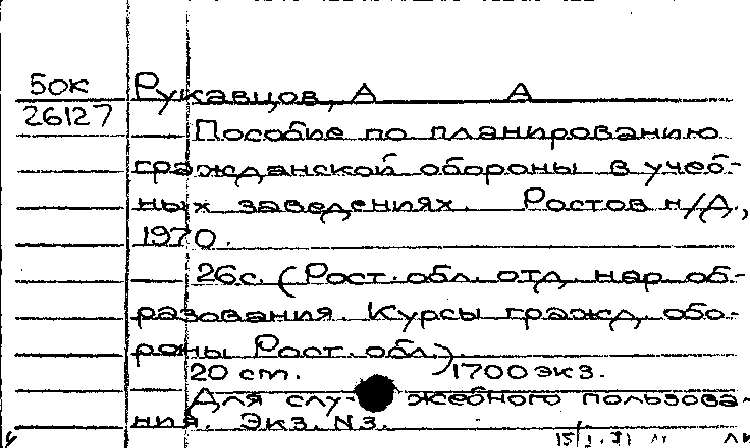 50к Рукавцов, А А
26127
Пособие по планированию
гражданской обороны в учеб-
ных заведениях. Ростов н/Д.,
1970.
26с. (Рост. обл. отд. нар об-
разования. Курсы гражд. обо-
роны Рост. обл.)
20 ст. 1700 экз.
Для служебного пользова-
ния. Экз. N3.